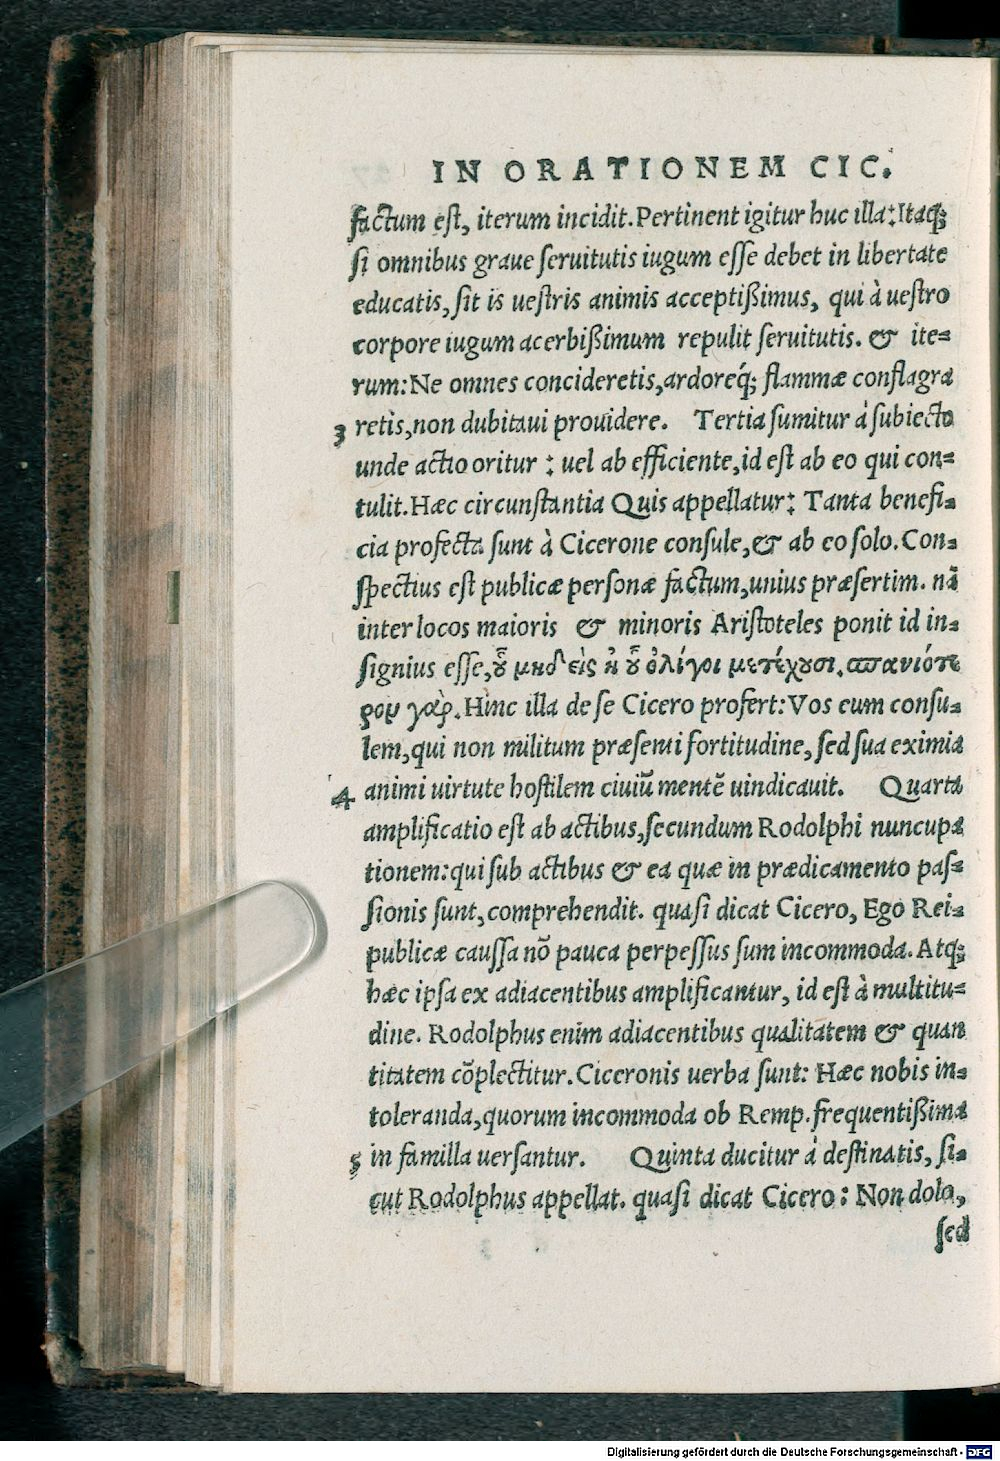 IN ORATIONEM CIC.
factum est, iterum incidit. Pertinent igitur huc illa: Itaq;
si omnibus graue seruitutis iugum esse debet in libertate
educatis, sit is uestris animis acceptißimus, qui à uestro
corpore iugum acerbißimum repulit seruitutis. & ite=
rum: Ne omnes concideretis, ardoreq́; flammæ conflagra
3 retis, non dubitaui prouidere. Tertia sumitur à subiecto
unde actio oritur : uel ab efficiente, id est ab eo qui con=
tulit. Hæc circunstantia Quis appellatur: Tanta benefi=
cia profecta sunt à Cicerone consule, & ab eo solo. Con=
spectius est publicæ personæ factum, unius præsertim. nã
inter locos maioris & minoris Aristoteles ponit id in=
signius esse, οὗ μηδεὶς ἢ οὗ ὀλίγοι μετέχουσι. σπανιότε
ρον γάρ. Hinc illa de se Cicero profert: Vos eum consu=
lem, qui non militum præsenti fortitudine, sed sua eximia
4 animi uirtute hostilem ciuiũ mentẽ uindicauit. Quarta
amplificatio est ab actibus, secundum Rodolphi nuncupa
tionem: qui sub actibus & ea quæ in prædicamento pas=
sionis sunt, comprehendit. quasi dicat Cicero, Ego Rei=
publicæ caussa nõ pauca perpessus sum incommoda. Atq;
hæc ipsa ex adiacentibus amplificantur, id est à multitu=
dine. Rodolphus enim adiacentibus qualitatem & quan
titatem cõplectitur. Ciceronis uerba sunt: Hæc nobis in=
toleranda, quorum incommoda ob Remp. frequentißima
5 in familla uersantur. Quinta ducitur à destinatis, si=
cut Rodolphus appellat. quasi dicat Cicero: Non dolo,
sed
Digitalisierung gefördert durch die Deutsche Forschungsgemeinschaft - DFG